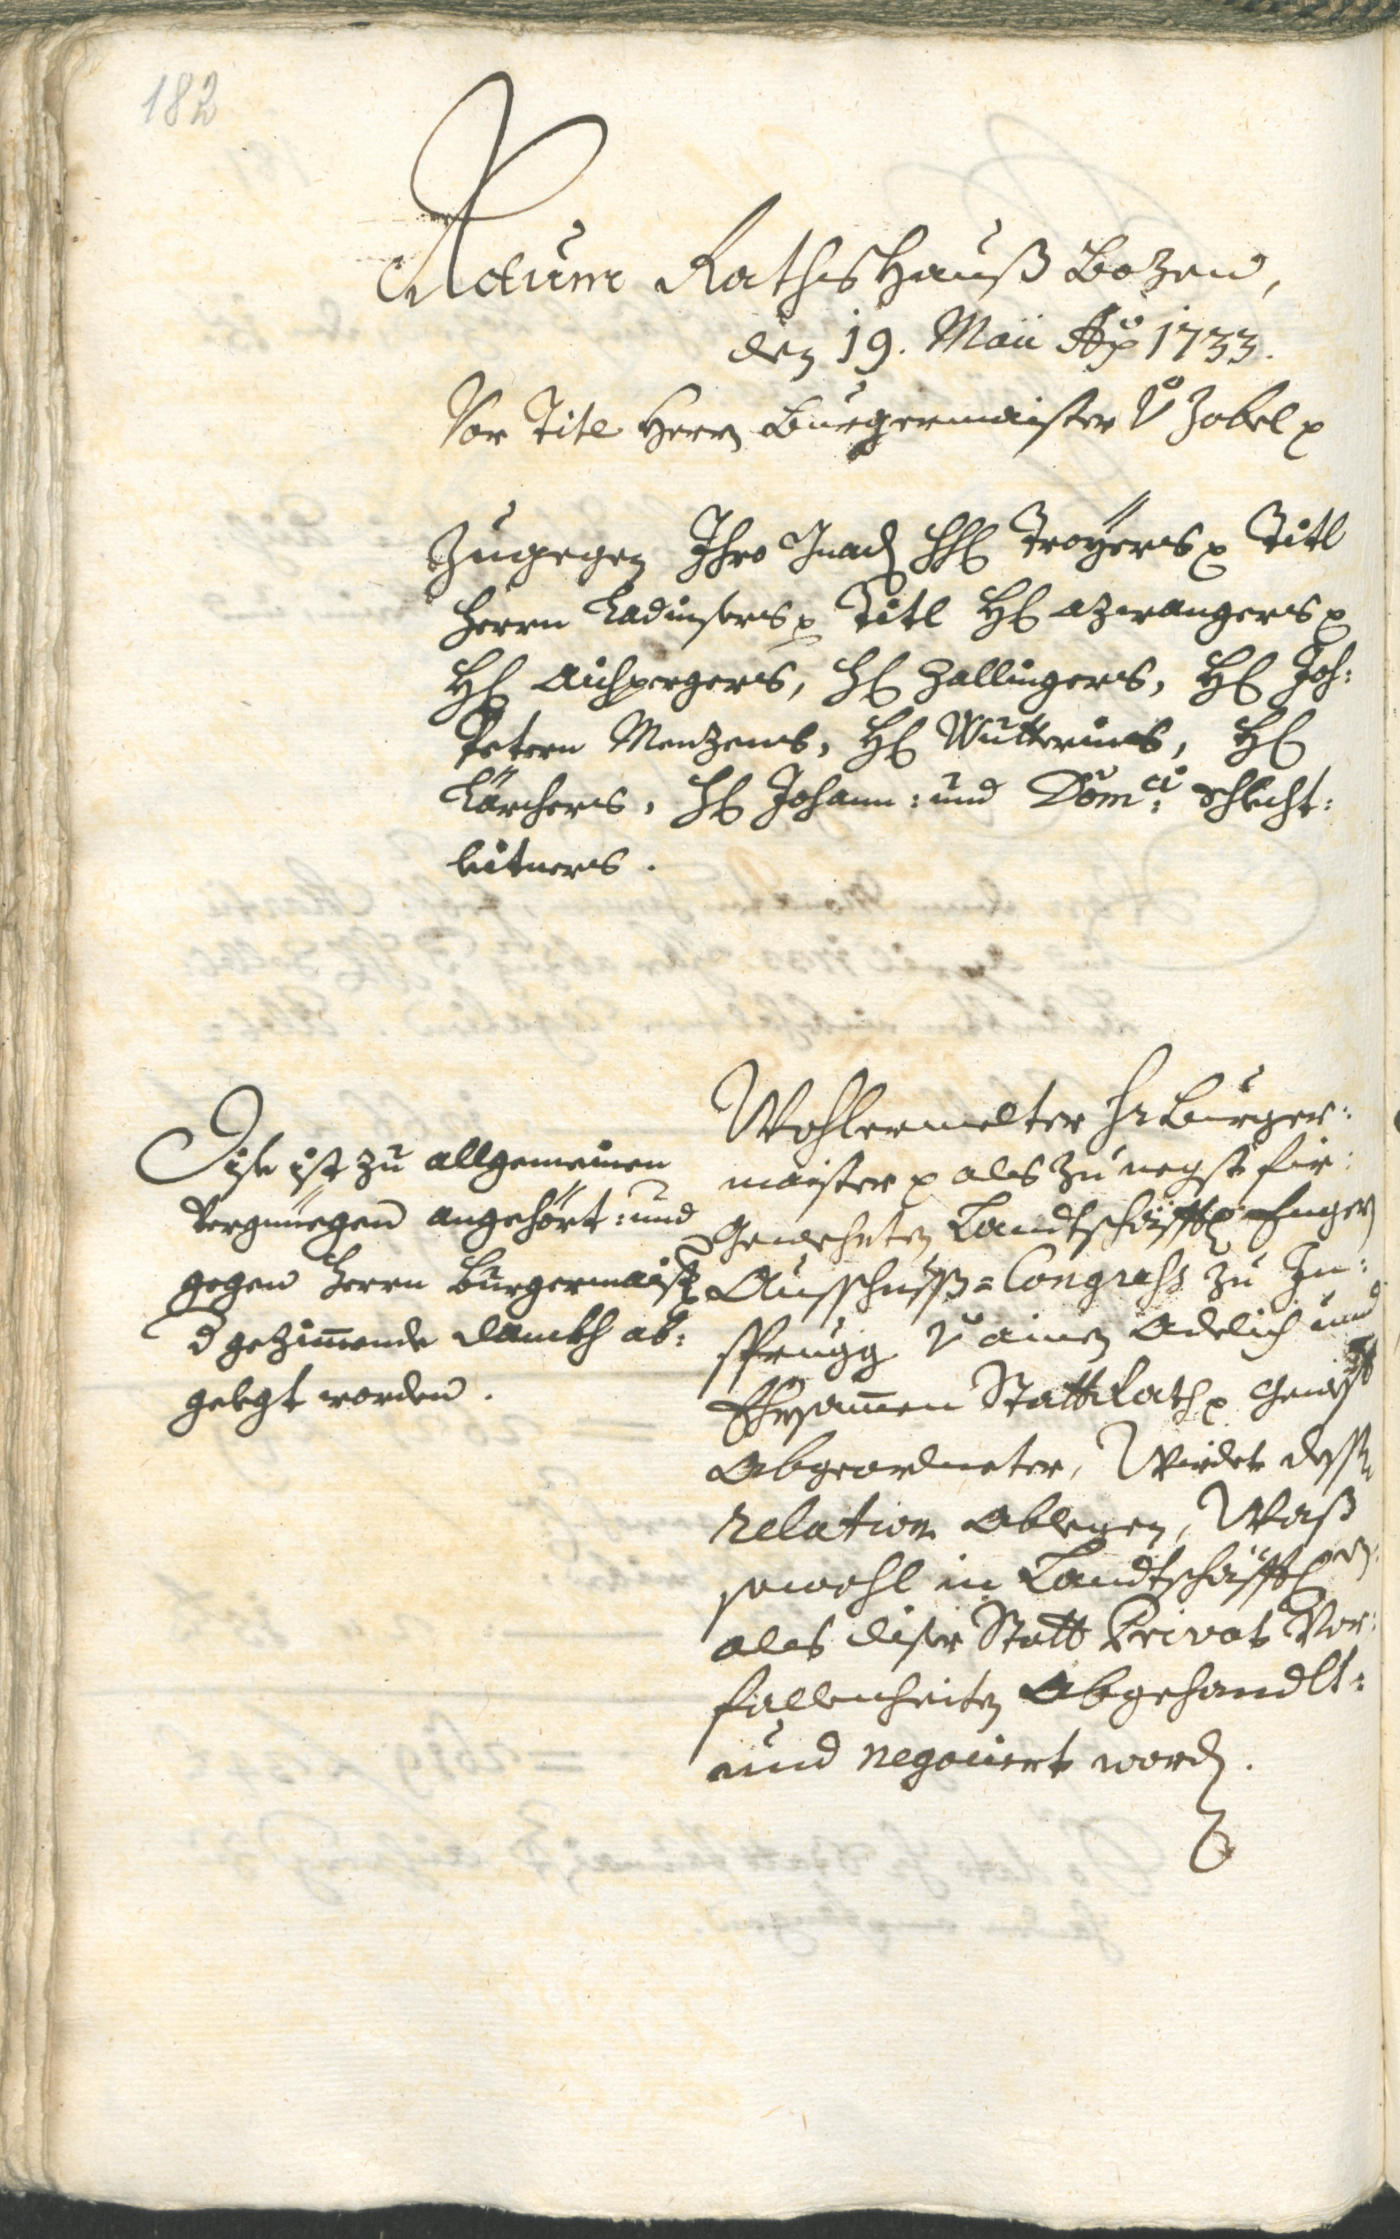 182
Actum Rathshauß Bozen,
den 19. Maii Ao 1733.
Vor Titl Herrn Burgermaister v Zobel p
Zugegen Ihro Gnad HH Troyers p Titl
Herrn Ladinsers p Titl H Azwangers p
H Aichpergers, H Zallingers, H Joh:
Petern Menzens, H Wutterins, H
Kärchers, H Johann: und Domci: Schlecht:
leitners.
Wohlermelter Hr Burger:
maister p als zu negst fir:
Gewesten Landtschäfftl: Engern
Ausschuß=Congress zu In:
sprugg v ainem Adelich und
Ehrsammen StattRath p
Abgeordneter, Wirdet dessen
relation ablegen, Waß
sowohl in Landtschäfftl:en
als diser Statt Privat Vor:
fallenheiten Abgehandlt:
und negociert word.
Dise ist zu allgemeinen
Vergnüegen angehört: und
gegen Herrn Burgermaister
d gezimmende Danckh ab:
gelegt worden.